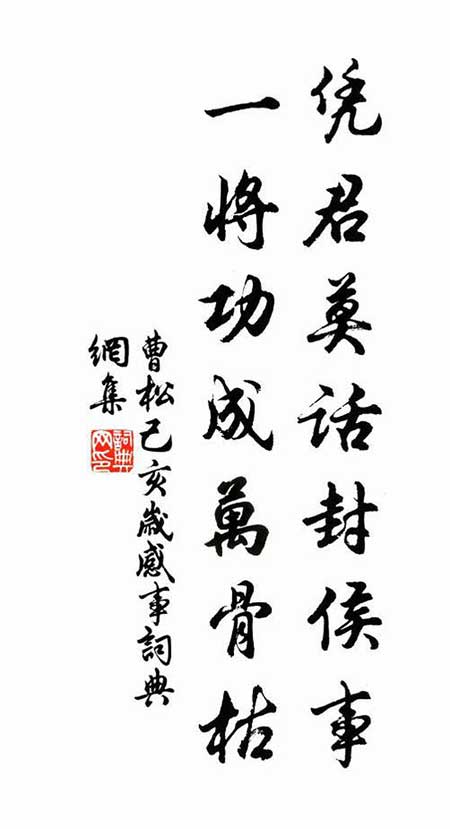 凭君莫话封侯事
一将功成萬骨枯
曹松己亥歲感事詞典
網集
詞典
网印